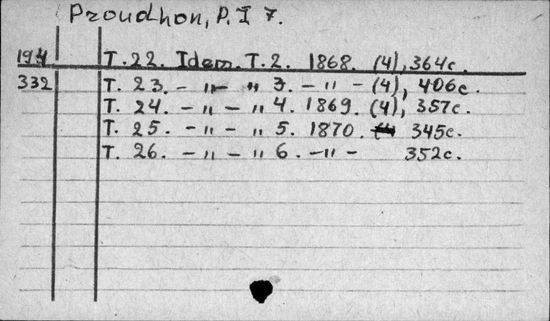 Proudhon, P. I 7.
194 T. 22. Idem. T. 2. 1868. (4), 364c.
332 T. 23. - „ - „ 3. - „ - (4), 406c.
T. 24. - „ - „ 4. 1869. (4), 357c.
T. 25. - „ - „ 5. 1870. (4 345c.
T. 26. - „ - „ 6. - „ - 352c.